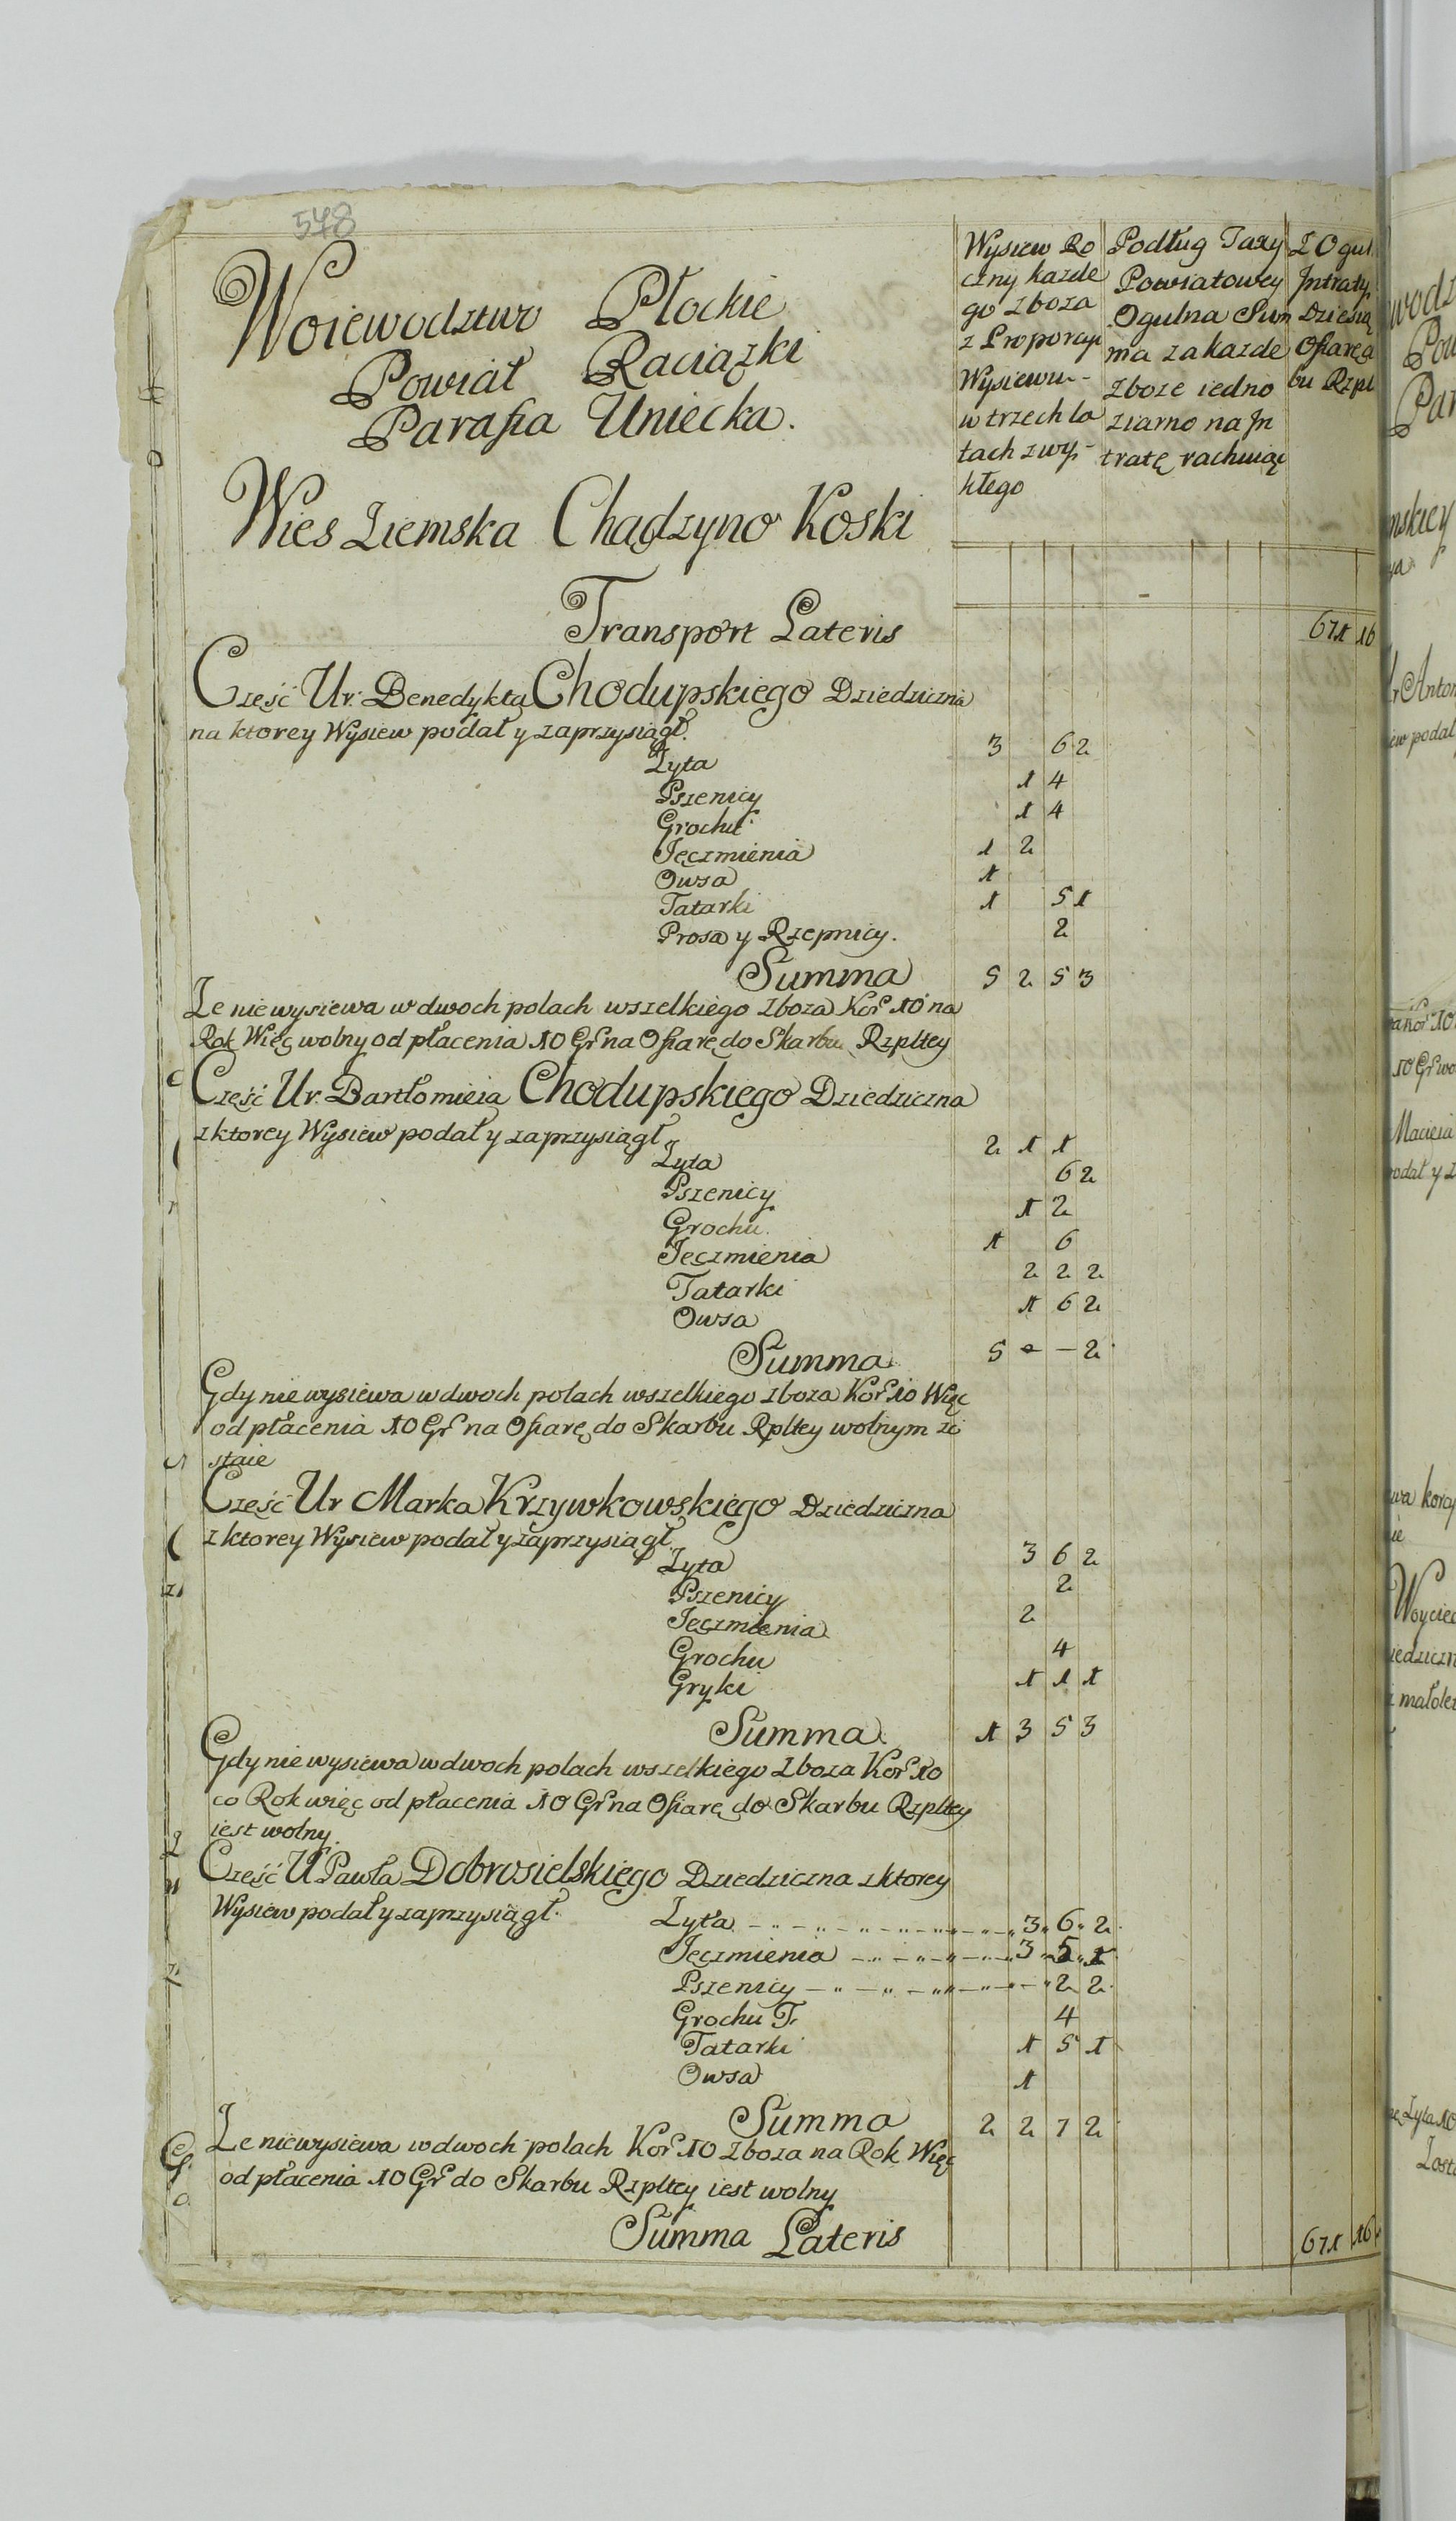 578
Woiewodztwo Płockie
Powiat Raciązki
Parafia Uniecka.
Wies Ziemska Chądzyno Koski
Wysiew Ro
czny kazde
go zboza
z Proporcyi
Wysiewu-
w trzech la
tach zwy-
kłego
Podług Taxy
Powiatowey
Ogulna Sum
ma za kazde
zboze iedno
ziarno na In
tratę rachuiąc
Z Ogul
Intraty
Dziesią
Ofiarę a
bu Rzpl
Transport Lateris 671 16
Część Ur. Benedykta Chodupskiego Dziedziczna
na ktorey Wysiew podał y zaprzysiągł.
Zyta 3 6 2
Pszenicy 1 4
Grochu 1 4
Jęczmienia 1 2
Owsa 1
Tatarki 1 5 1
Prosa y Rzepnicy. 2
Summa 5 2 5 3
Ze nie wysiewa w dwoch polach wszelkiego zboza Kor 10 na
Rok Więc wolny od płacenia 10 Gr na Ofiarę do Skarbu Rzpltey
Część Ur. Bartłomieia Chodupskiego Dziedziczna
z ktorey Wysiew podał y zaprzysiągł
Zyta 2 1 1
Pszenicy 6 2
Grochu. 1 2
Jęczmienia 1 6
Tatarki 2 2 2
Owsa 1 6 2
Summa 5 - - 2
Gdy nie wysiewa w dwoch polach wszelkiego zboza Kor 10 Więc
od płacenia 10 Gr na Ofiarę do Skarbu Rpltey wolnym zo
staie
Część Ur Marka Krzywkowskiego Dziedziczna
z ktorey Wysiew podał y zaprzysiągł
Zyta 3 6 2
Pszenicy 2
Jęczmienia 2
Grochu 4
Gryki 1 1 1
Summa 1 3 5 3
Gdy nie wysiewa w dwoch polach wszelkiego Zboza Kor 10
co Rok więc od płacenia 10 Gr na Ofiarę do Skarbu Rzpltey
iest wolny.
Część U Pawła Dobrosielskiego Dziedziczna z ktorey
Wysiew podał y zaprzysiągł.
Zyta 3 6 2
Jęczmienia 3 5 1
Pszenicy 2 2
Grochu T. 4
Tatarki 1 5 1
Owsa 1
Summa 2 2 7 2
Ze niewysiewa w dwoch polach Kor 10 Zboza na Rok Więc
od płacenia 10 Gr do Skarbu Rzpltey iest wolny
Summa Lateris 671 16